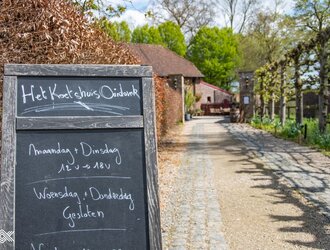 Het Koetshuis Oudnoorde
Maandag + Dinsdag
12u → 18u
Woensdag + Donderdag
Gesloten